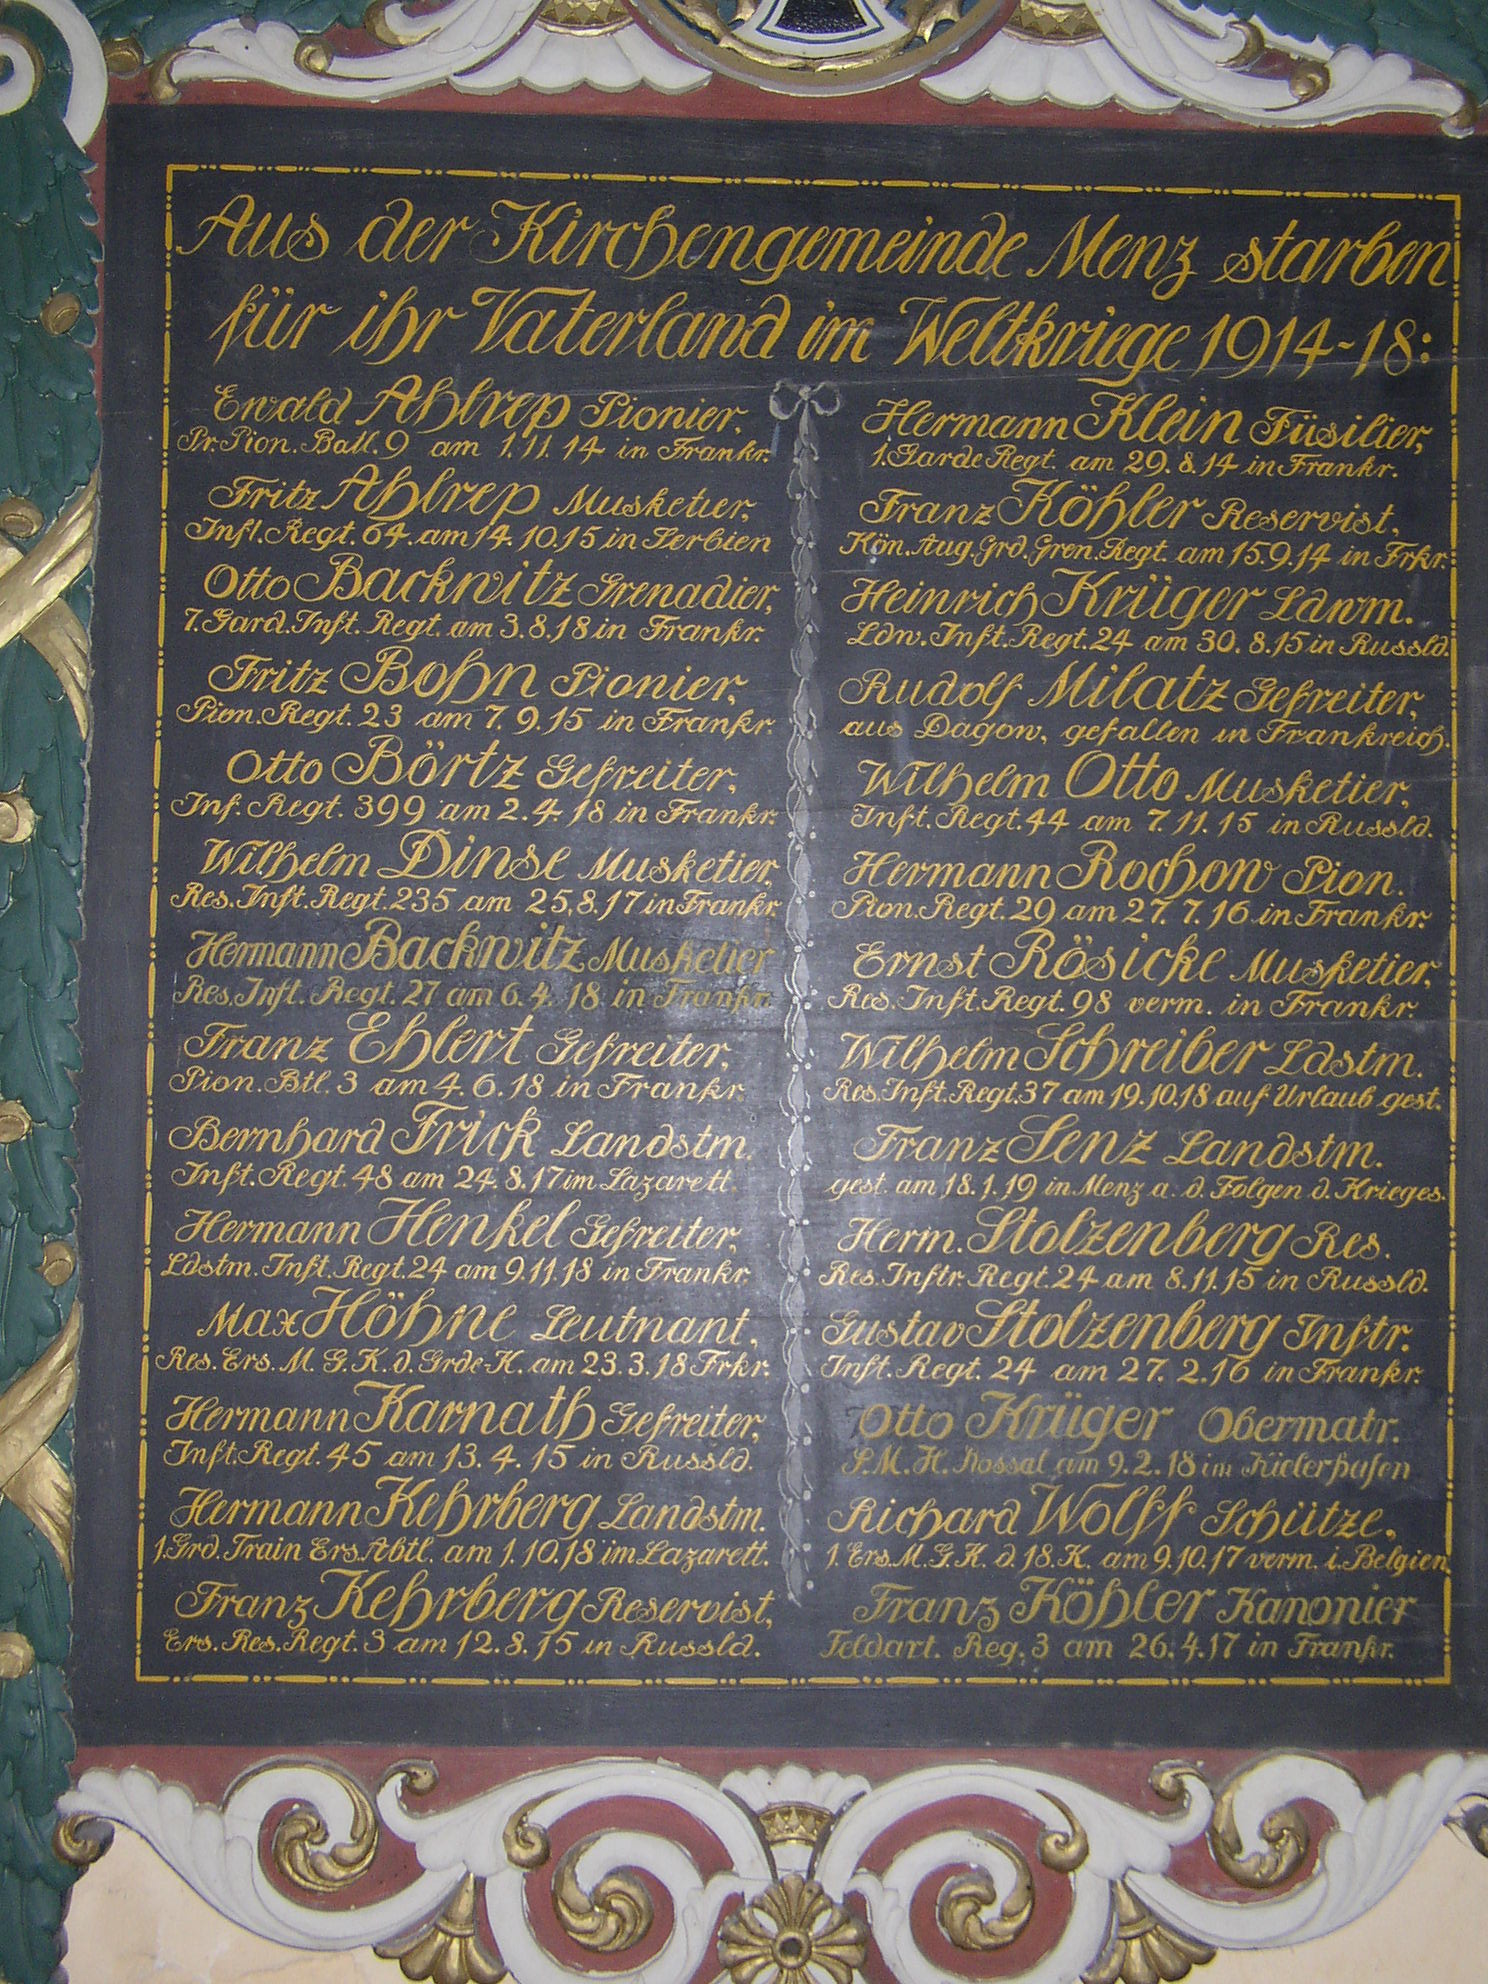 Aus der Kirchengemeinde Menz starben
für ihr Vaterland im Weltkriege 1914-18:
Ewald Ahlrep Pionier,
Pr. Pion. Batl. 9 am 1.11.14 in Frankr.
Fritz Ahlrep Musketier,
Infl. Regt. 64. am 14.10.15 in Serbien
Otto Backwitz Grenadier,
7. Gard. Inft. Regt. am 3.8.18 in Frankr.
Fritz Bohn Pionier,
Pion. Regt. 23 am 7.9.15 in Frankr.
Otto Börtz Gefreiter,
Inf. Regt. 399 am 2.4.18 in Frankr.
Wilhelm Dinse Musketier,
Res. Inft. Regt. 235 am 25.8.17 in Frankr.
Hermann Backwitz Musketier
Res. Inft. Regt. 27 am 6.4.18 in Frankr.
Franz Ehlert Gefreiter,
Pion. Btl. 3 am 4.6.18 in Frankr.
Bernhard Frick Landstm.
Inft. Regt. 48 am 24.8.17 im Lazarett.
Hermann Henkel Gefreiter,
Ldstm. Inft. Regt. 24 am 9.11.18 in Frankr.
Max Höhne Leutnant,
Res. Ers. M. G. K. d. Grde-K. am 23.3.18 Frkr.
Hermann Karnath Gefreiter,
Inft. Regt. 45 am 13.4.15 in Russld.
Hermann Kehrberg Landstm.
1. Grd. Train Ers. Abtl. am 1.10.18 im Lazarett.
Franz Kehrberg Reservist,
Ers. Res. Regt. 3 am 12.8.15 in Russld.
Hermann Klein Füsilier,
1. Garde Regt. am 29.8.14 in Frankr.
Franz Köhler Reservist,
Kön. Aug. Grd. Gren. Regt. am 15.9.14 in Frkr.
Heinrich Krüger Ldwm.
Ldw. Inft. Regt. 24 am 30.8.15 in Russld.
Rudolf Milatz Gefreiter,
aus Dagow, gefallen in Frankreich.
Wilhelm Otto Musketier,
Inft. Regt. 44 am 7.11.15 in Russld.
Hermann Rochow Pion.
Pion. Regt. 29 am 27.7.16 in Frankr.
Ernst Rösicke Musketier,
Res. Inft. Regt. 98 verm. in Frankr.
Wilhelm Schreiber Ldstm.
Res. Inft. Regt. 37 am 19.10.18 auf Urlaub gest.
Franz Senz Landstm.
gest. am 18.1.19 in Menz a. d. Folgen d. Krieges.
Herm. Stolzenberg Res.
Res. Inftr. Regt. 24 am 8.11.15 in Russld.
Gustav Stolzenberg Inftr.
Inft. Regt. 24 am 27.2.16 in Frankr.
Otto Krüger Obermatr.
S.M.H. Rossal am 9.2.18 im Kielerhafen
Richard Wolff Schütze,
1. Ers. M. G. K. d. 18. K. am 9.10.17 verm. i. Belgien.
Franz Köhler Kanonier
Feldart. Reg. 3 am 26.4.17 in Frankr.